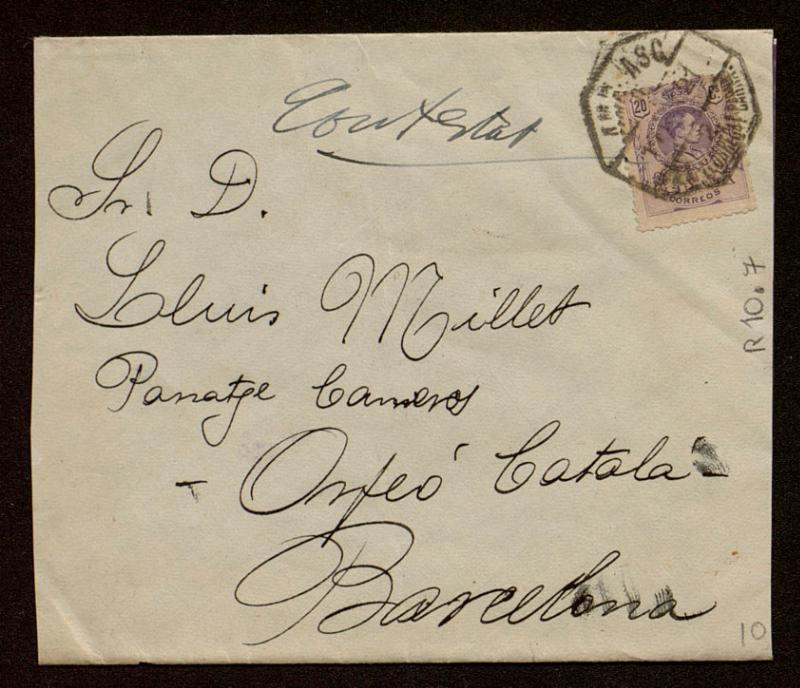 Contestat
ASC
20
CORREOS
Sr. D.
Lluis Millet
Panatge Cameros
- Orfeó Català -
Barcelona
R 10.7
10